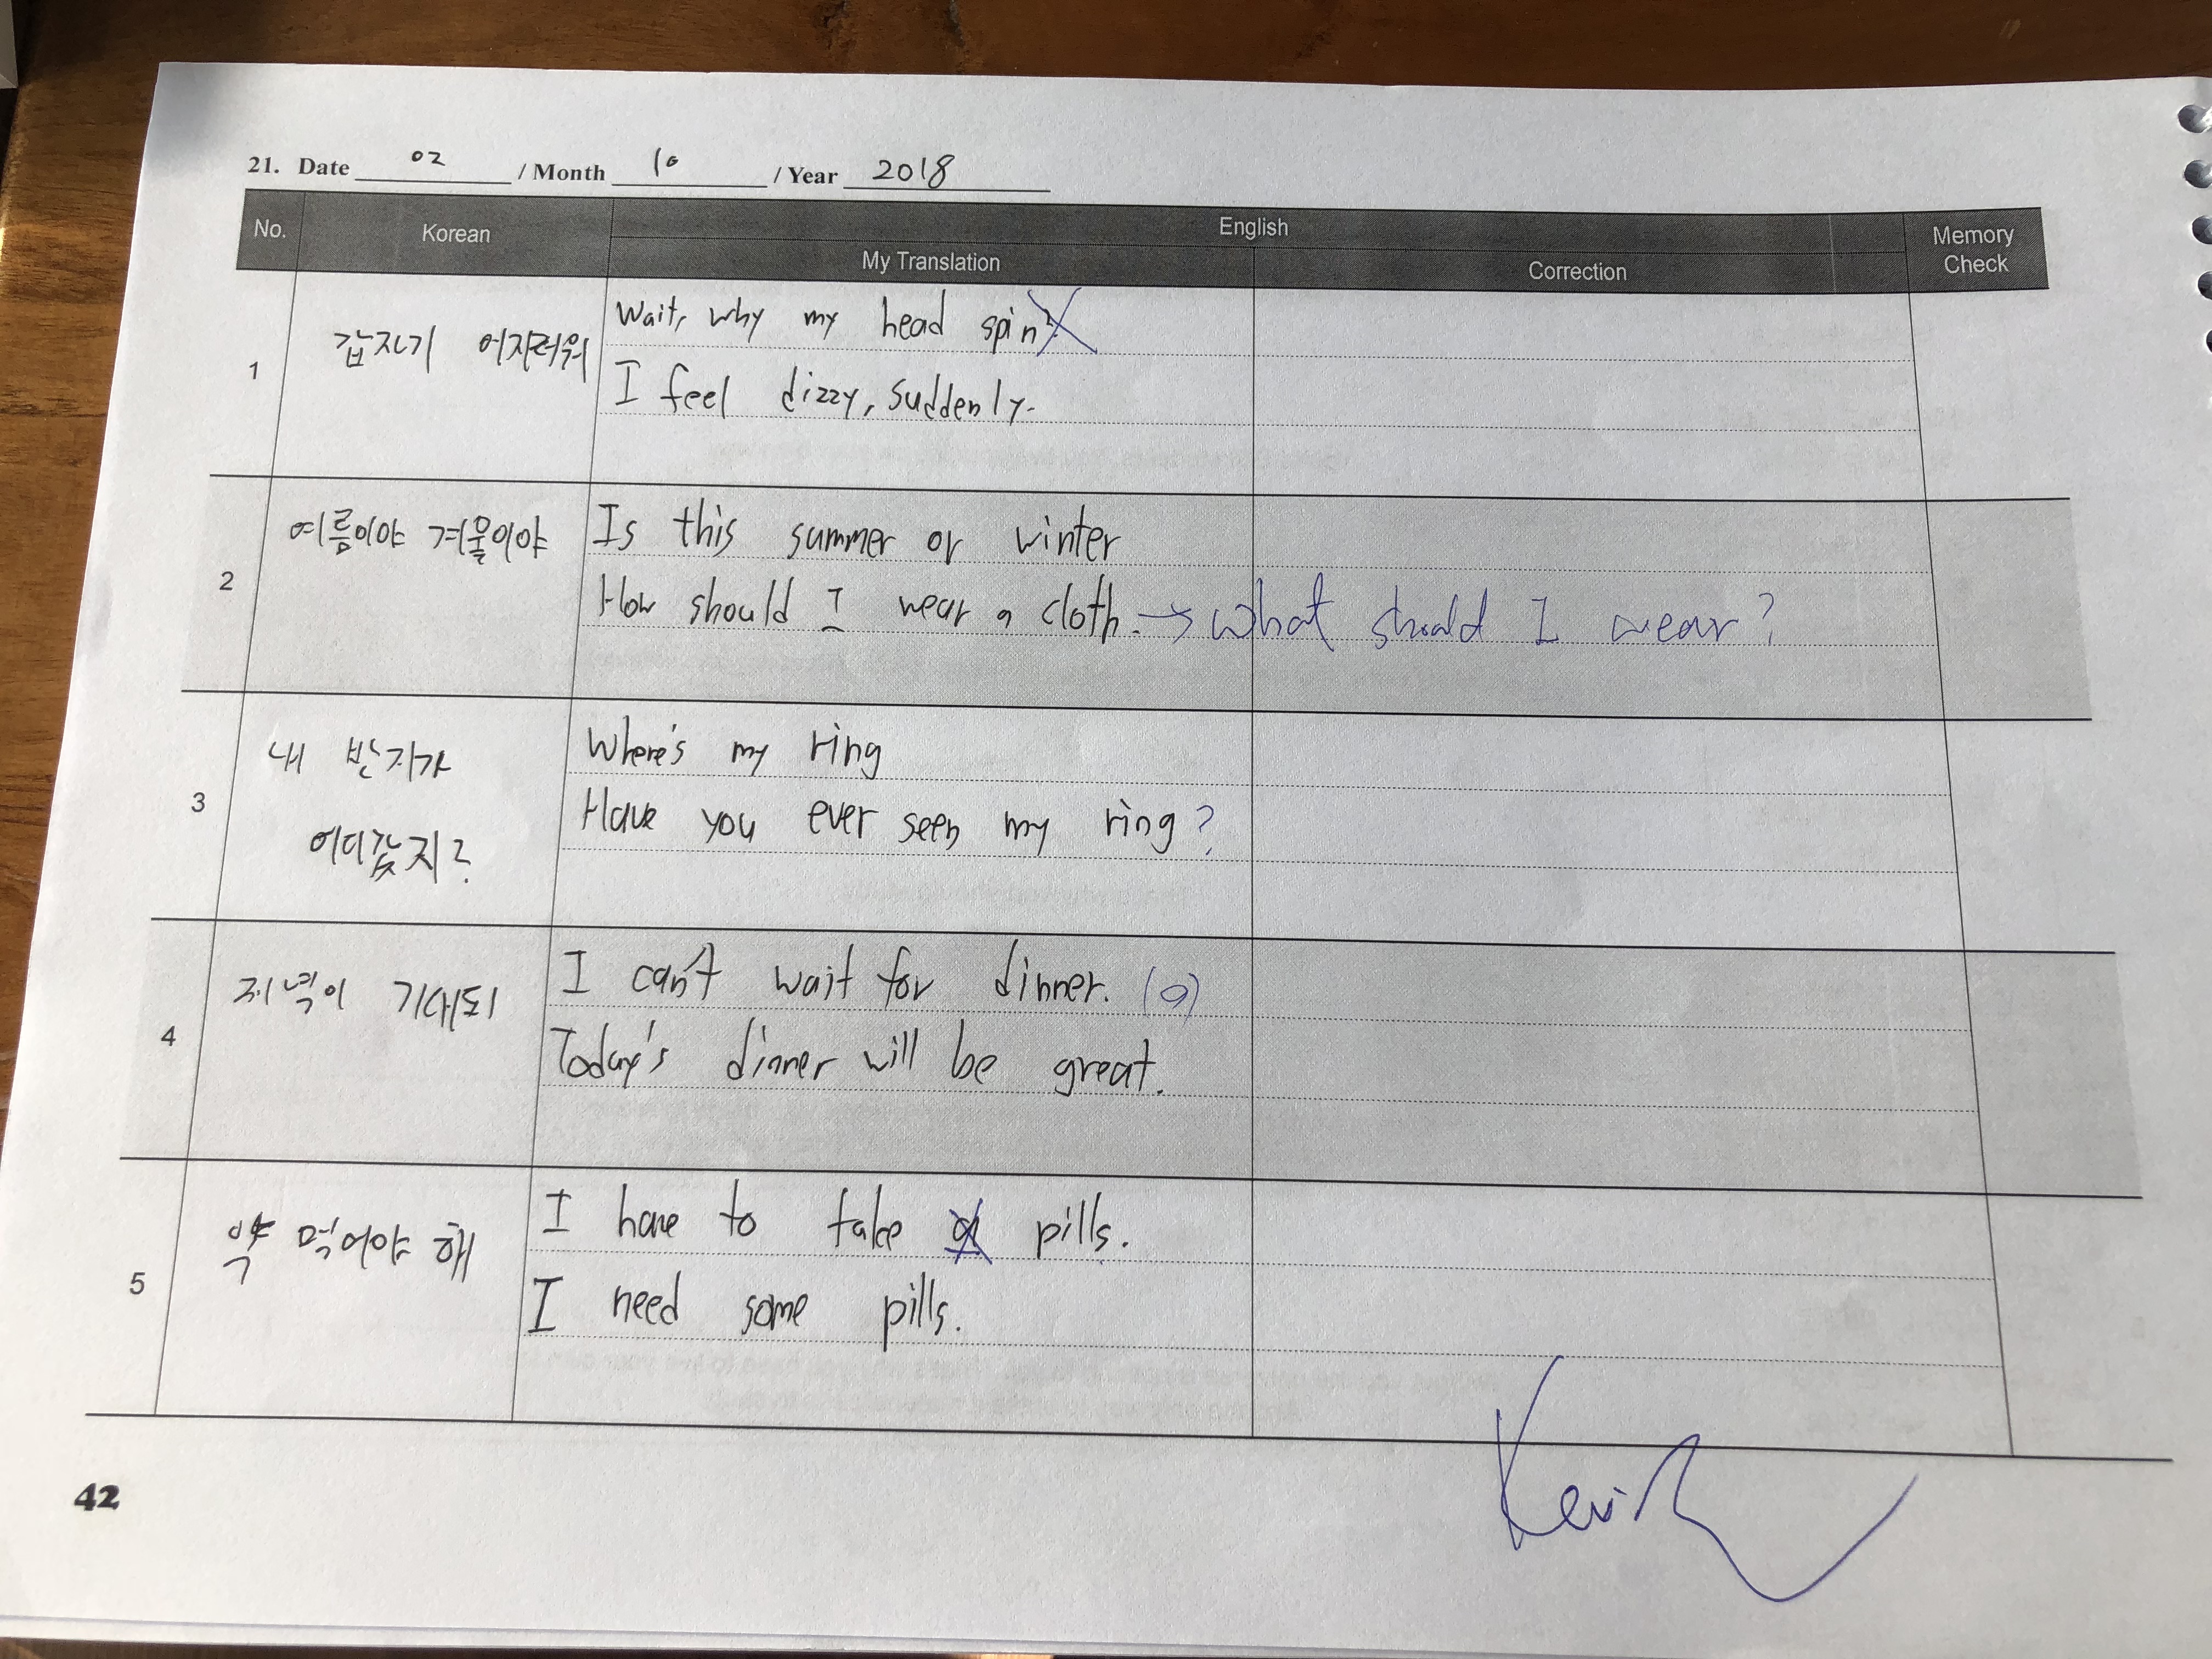 21. Date 02 / Month 10 / Year 2018
No. Korean English Memory Check
My Translation Correction
1 갑자기 어지러워
Wait, why my head spin?
I feel dizzy, suddenly.
2 여름이야 겨울이야
Is this summer or winter
How should I wear a cloth. → what should I wear?
3 내 반지가
어디갔지?
Where's my ring
Have you ever seen my ring?
4 저녁이 기대되
I can't wait for dinner. (a)
Today's dinner will be great.
5 약 먹어야 해
I have to take a pills.
I need some pills.
Kevin
42